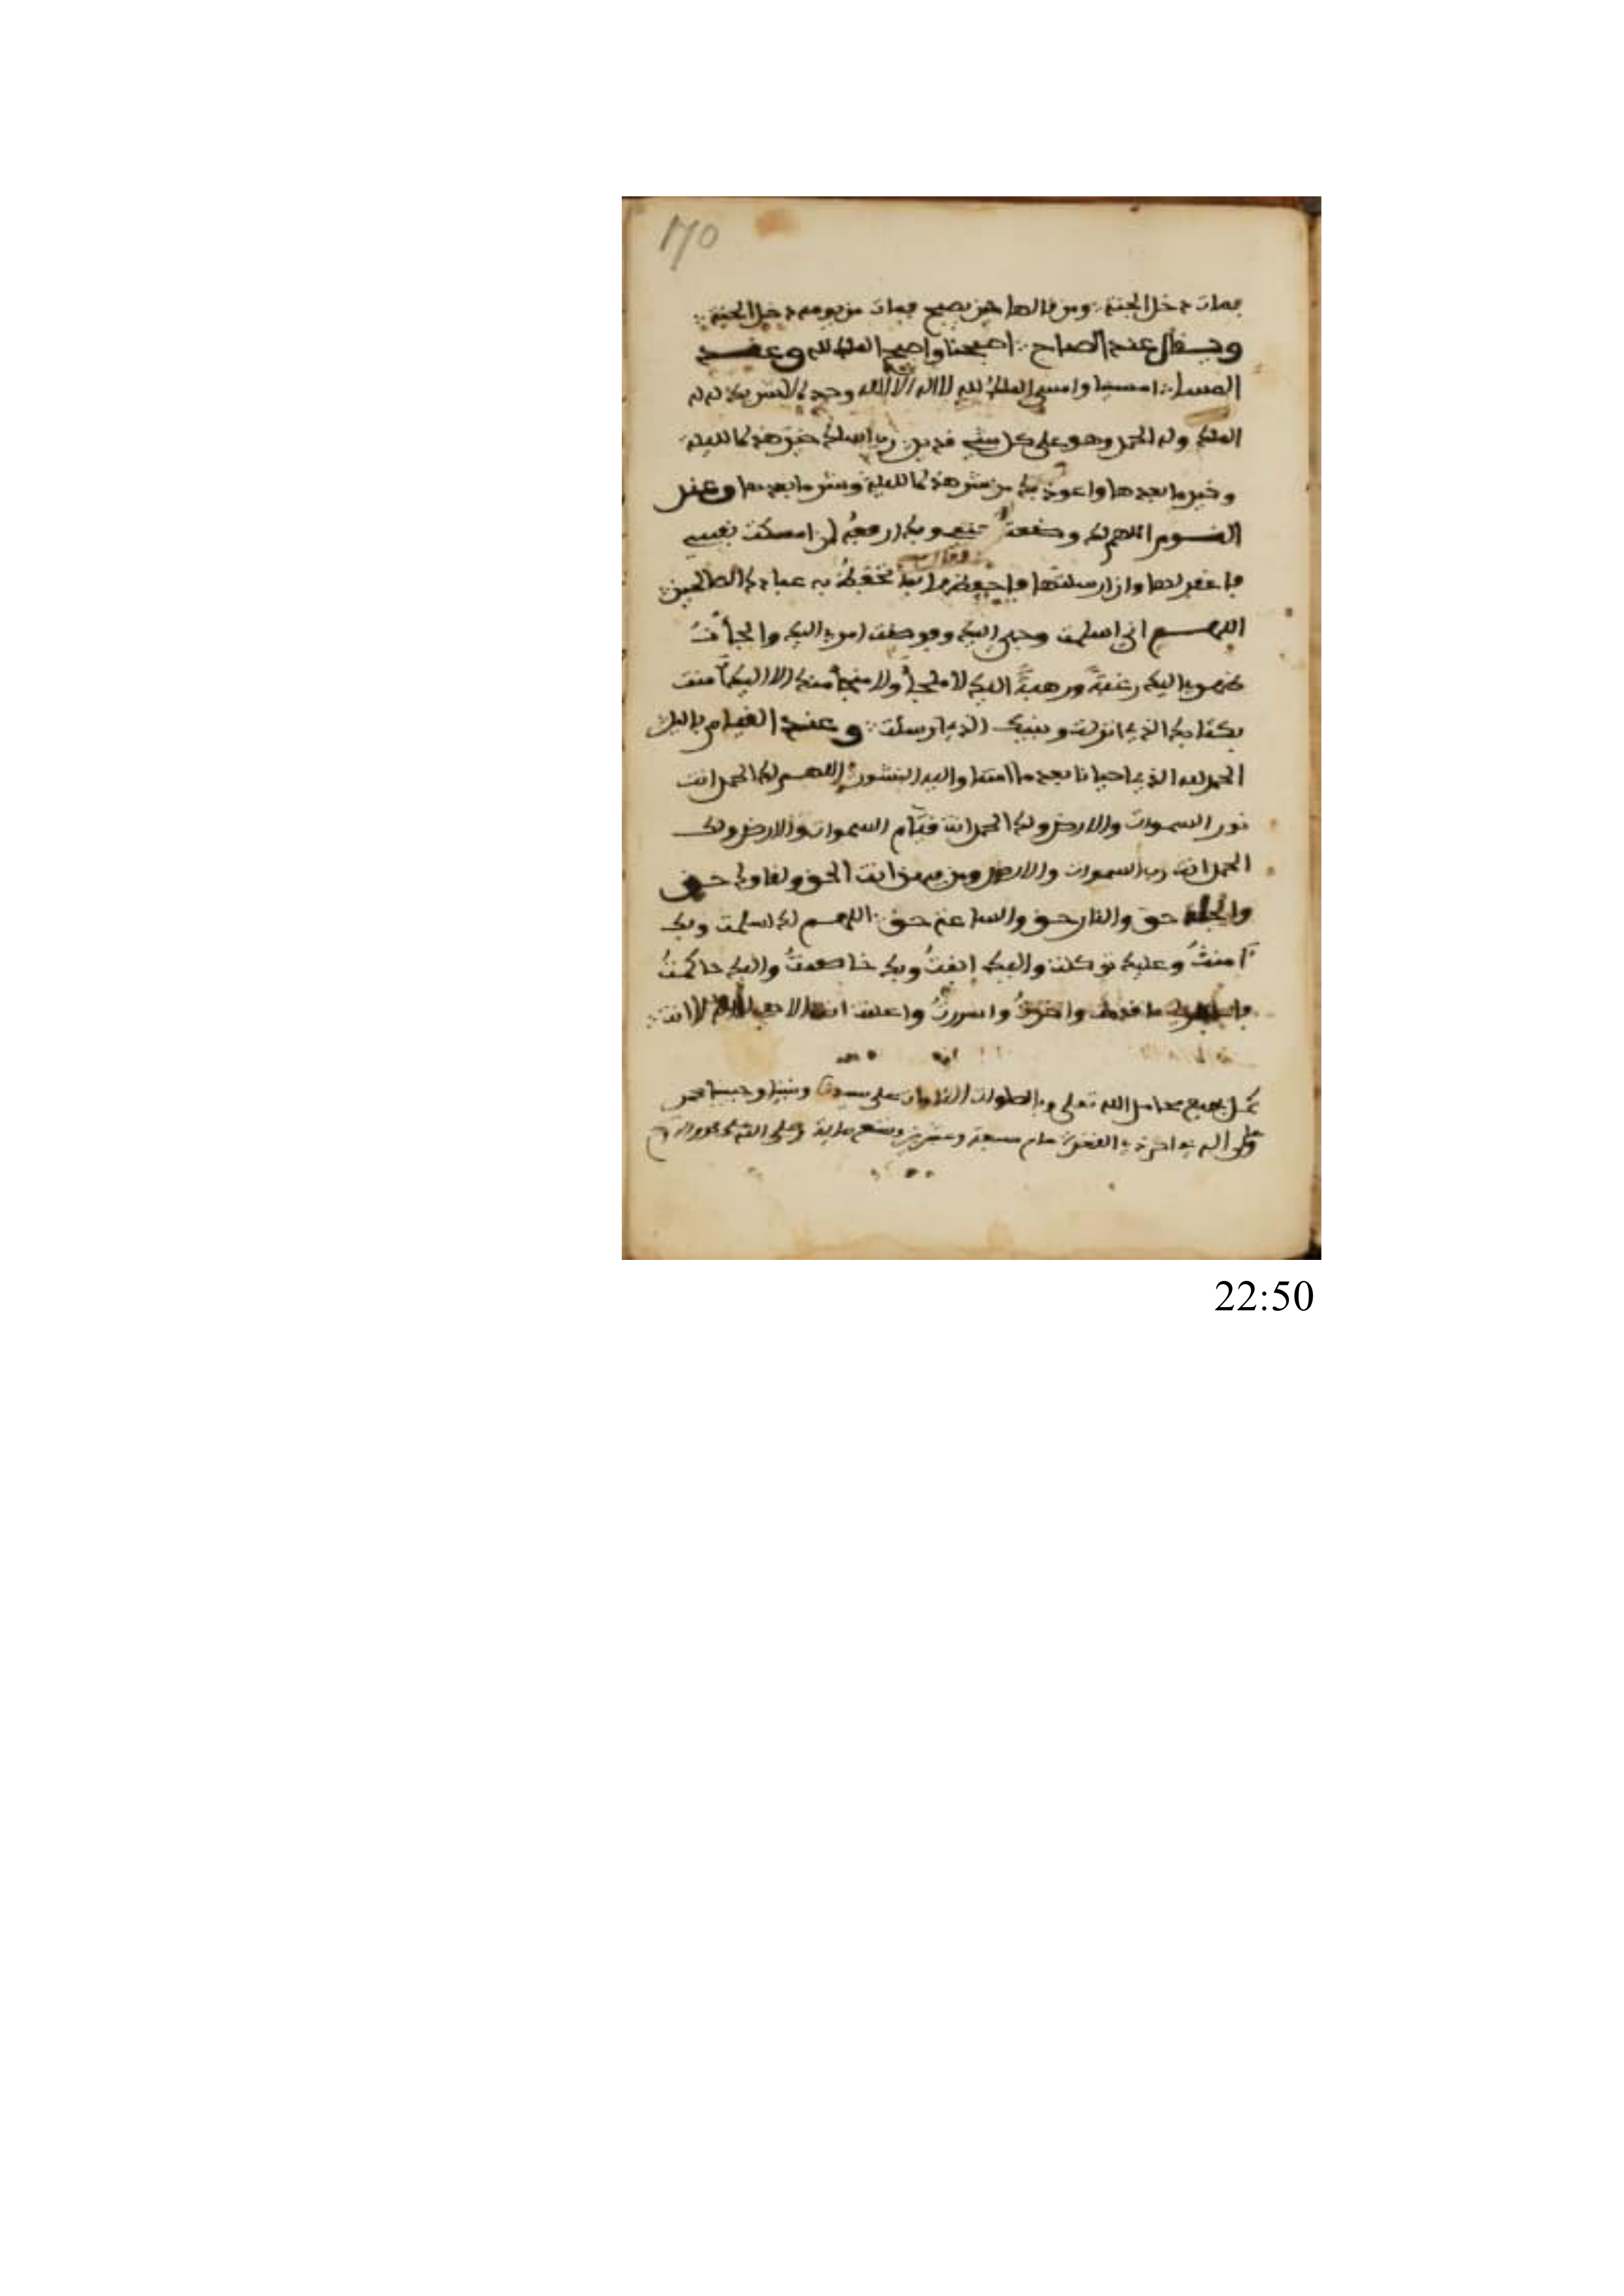 170
فمات دخل الجنة ومن قالها حين يصبح فمات من يومه دخل الجنة
ويقال عند الصباح اصبحنا واصبح الملك لله وعند
المساء امسينا وامسى الملك لله لا اله الا الله وحده لا شريك له له
الملك وله الحمد وهو على كل شيء قدير رب اسلك خير هذه الليلة
وخير ما بعدها واعوذ بك من شر هذه الليلة وشر ما بعدها وعند
النوم اللهم لك وضعت جنبي وبك ارفعه ان امسكت نفسي
فاغفر لها وان ارسلتها فاحفظها بما تحفظ به عبادك الصالحين
اللهم اني اسلمت وجهي اليك وفوضت امري اليك والجأتُ
ظهري اليك رغبةً ورهبةً اليك لا ملجأ ولا منجأ منك الا اليك آمنت
بكتابك الذي انزلت ونبيك الذي ارسلت وعند القيام باليل
الحمد لله الذي احيانا بعد ما امتنا واليه النشور اللهم لك الحمد انت
نور السموات والارض ولك الحمد انت قيّام السموات والارض ولك
الحمد انت رب السموات والارض ومن فيهن انت الحق ولقاوك حق
والجنة حق والنار حق والساعة حق اللهم لك اسلمت وبك
آمنتُ وعليك توكلت واليك انبتُ وبك خاصمتُ واليك حاكمتُ
فاغفر لي ما قدمت واخرتُ واسررتُ واعلنت انت الاهي لا اله الا انت
كمل بجميع محامد الله تعلى وبالصلوات التامات على سيدنا ونبينا وحبيبنا محمد
وعلى اله في اخر ذي القعدة عام سبعة وعشرين وتسع ماية وصلى الله على
22:50